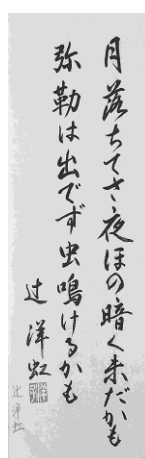 月落ちてさ夜ほの暗く未だかも
弥勒は出でず虫鳴けるかも
辻洋虹